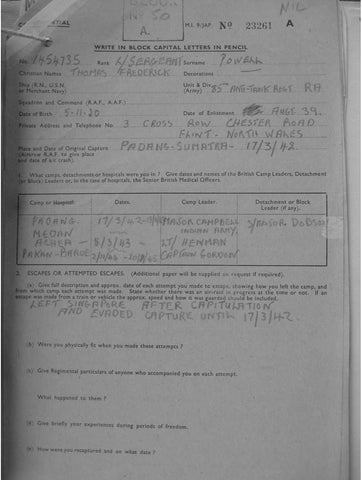 NIL
CONFIDENTIAL
A.
M.I. 9/JAP. No 23261 A
WRITE IN BLOCK CAPITAL LETTERS IN PENCIL
No. 1454735 Rank L/SERGEANT Surname POWELL
Christian Names THOMAS FREDERICK Decorations
Ship (R.N., U.S.N. or Merchant Navy) Unit & Div. (Army) 85 ANTI-TANK REGT RA
Squadron and Command (R.A.F., A.A.F.)
Date of Birth 5-11-20 Date of Enlistment AUGT 39.
Private Address and Telephone No. 3 CROSS ROW, CHESTER ROAD
FLINT. NORTH WALES
Place and Date of Original Capture PADANG-SUMATRA- 17/3/42
(Aircrew R.A.F. to give place
and date of a/c crash).
What camps, detachments or hospitals were you in? Give dates and names of the British Camp Leaders, Detachment
(or Block) Leaders or, in the case of hospitals, the Senior British Medical Officers.
Camp or Hospital. Dates. Camp Leader. Detachment or Block Leader (if any).
PADANG. 17/3/42- MAJOR CAMPBELL S/MAJOR DOBSON
MEDAN INDIAN ARMY.
8/3/43 - LT/ HENMAN
CAPTAIN GORDON
ESCAPES OR ATTEMPTED ESCAPES. (Additional paper will be supplied on request if required).
(a) Give full description and approx. date of each attempt you made to escape, showing how you left the camp, and
from which camp each attempt was made. State whether there was an air-raid in progress at the time or not. If an
escape was made from a train or vehicle the approx. speed and how it was guarded should be included.
LEFT SINGAPORE AFTER CAPITULATION
AND EVADED CAPTURE UNTIL 17/3/42
(b) Were you physically fit when you made these attempts?
(c) Give Regimental particulars of anyone who accompanied you on each attempt.
What happened to them?
(d) Give briefly your experiences during periods of freedom.
(e) How were you recaptured and on what date?